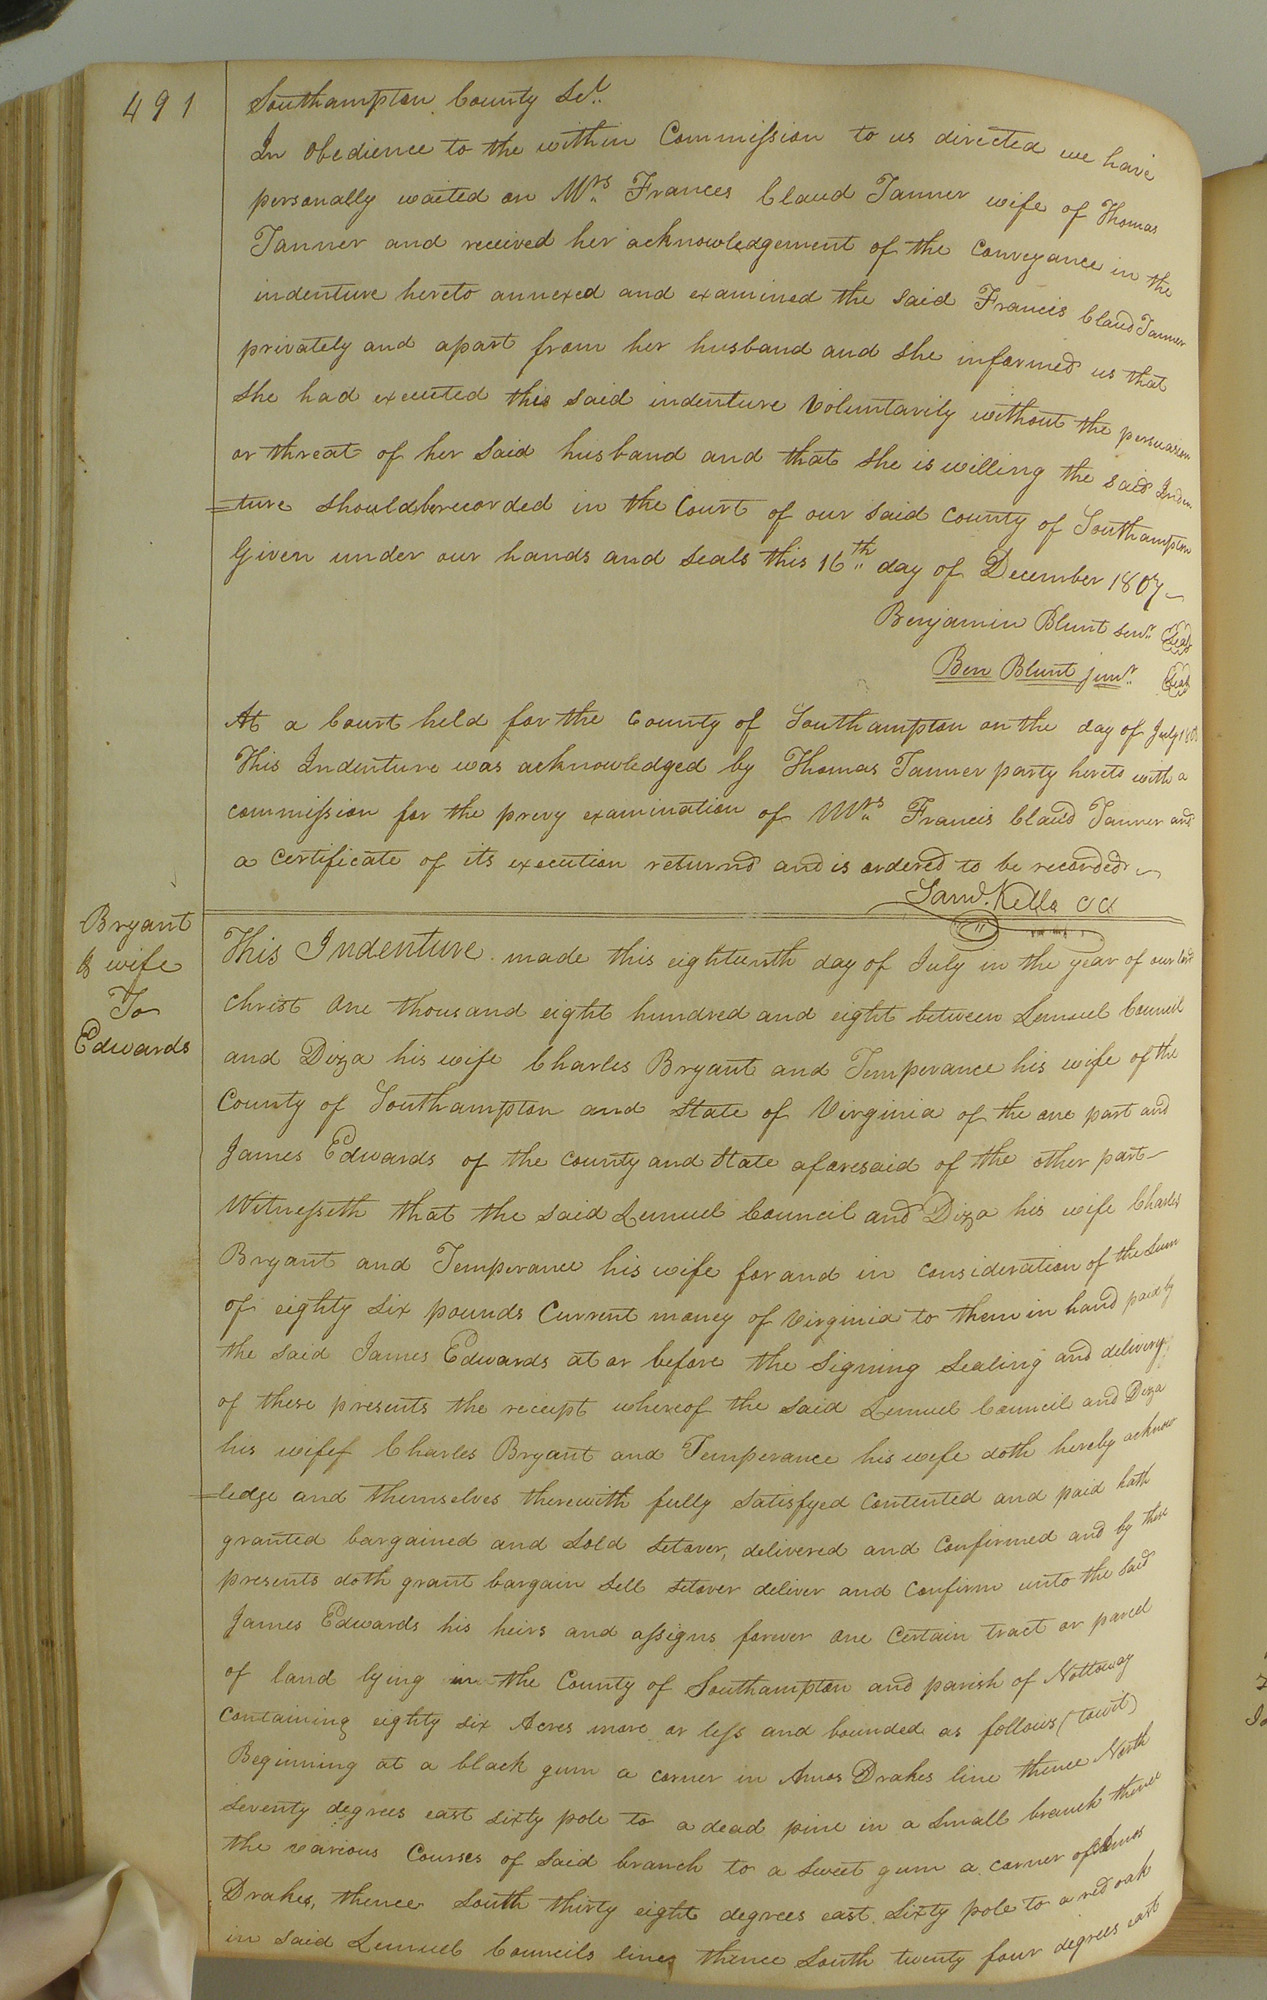 491
Southampton County Sct.
In obedience to the within Commission to us directed we have
personally waited on Mrs Frances Claud Tanner wife of Thomas
Tanner and received her acknowledgement of the conveyance in the
indenture hereto annexed and examined the said Francis Claud Tanner
privately and apart from her husband and she informed us that
she had executed this said indenture voluntarily without the persuasion
or threat of her said husband and that she is willing the said Inden
=ture should be recorded in the Court of our said county of Southampton
Given under our hands and seals this 16th day of December 1807
Benjamin Blunt senr. Seal
Ben Blunt junr. Seal
At a Court held for the County of Southampton on the day of July
This Indenture was acknowledged by Thomas Tanner party hereto with a
commission for the privy examination of Mrs Francis Claud Tanner and
a certificate of its execution returnd and is ordered to be recorded
Saml. Kello CC
Bryant
& wife
To
Edwards
This Indenture made this eighteenth day of July in the year of our Lord
christ one thousand eight hundred and eight between Lemuel Council
and Diza his wife Charles Bryant and Temperance his wife of the
County of Southampton and State of Virginia of the one part and
James Edwards of the county and State aforesaid of the other part
Witnesseth that the said Lemuel Council and Diza his wife Charles
Bryant and Temperance his wife for and in consideration of the sum
of eighty six pounds Current money of Virginia to them in hand paid by
the said James Edwards at or before the Signing Sealing and delivery
of these presents the receipt whereof the said Lemuel Council and Diza
his wife Charles Bryant and Temperance his wife doth hereby acknow
=ledge and themselves therewith fully satisfyed contented and paid hath
granted bargained and sold setover, delivered and confirmed and by these
presents doth grant bargain sell setover deliver and confirm unto the said
James Edwards his heirs and assigns forever one certain tract or parcel
of land lying in the County of Southampton and parish of Nottoway
containing eighty six Acres more or less and bounded as follows (towit)
Beginning at a black gum a corner in Amos Drakes line thence North
seventy degrees east sixty pole to a dead pine in a small branch thence
the various Courses of said branch to a sweet gum a corner of Amos
Drakes, thence south thirty eight degrees east sixty pole to a red oak
in said Lemuel Councils line, thence south twenty four degrees east